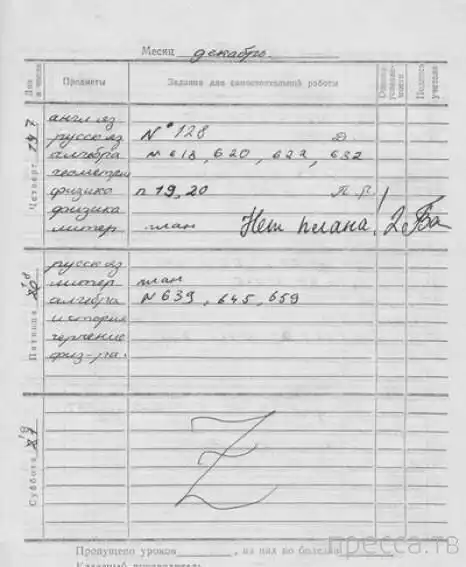 Месяц декабрь
Дни и числа Предметы Задания для самостоятельной работы Оценка успеваемости Подпись учителя
Четверг
англ яз
русск яз № 128
алгебра № 618, 620, 622, 632
геометрия
физика п 19, 20
физика
литер план Нет плана! 2
Пятница
русск яз
литер план
алгебра № 639, 645, 659
история
черчение
физ-ра.
Суббота
Z
Пропущено уроков , из них по болезни
Классный руководитель
пресса.тв